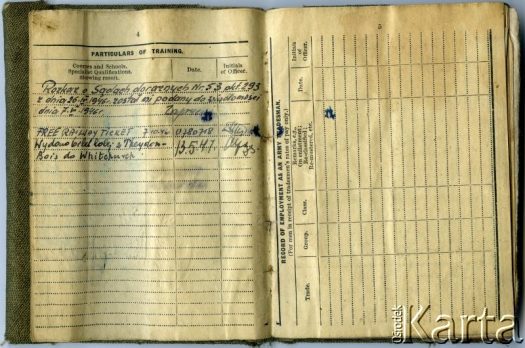 4
PARTICULARS OF TRAINING.
Courses and Schools,
Specialist Qualifications,
showing result.
Date.
Initials
of Officer.
Rozkaz o Sądach doraźnych Nr. 53 pkt 293
z dnia 1946r. został mi podany do wiadomości
dnia 1946r.
FREE RAILWAY TICKET 7.10.46 0780718
Wydano bilet kolej. z Theydon-
Bois do Whitchurch
13.5.47.
5
RECORD OF EMPLOYMENT AS AN ARMY TRADESMAN.
(For men in receipt of tradesmen's rates of pay only.)
Trade.
Group.
Class.
Remarks, e.g.,
on enlistment;
Re-classified;
Re-mustered, etc.
Date.
Initials
of
Officer.
ośrodek
Karta